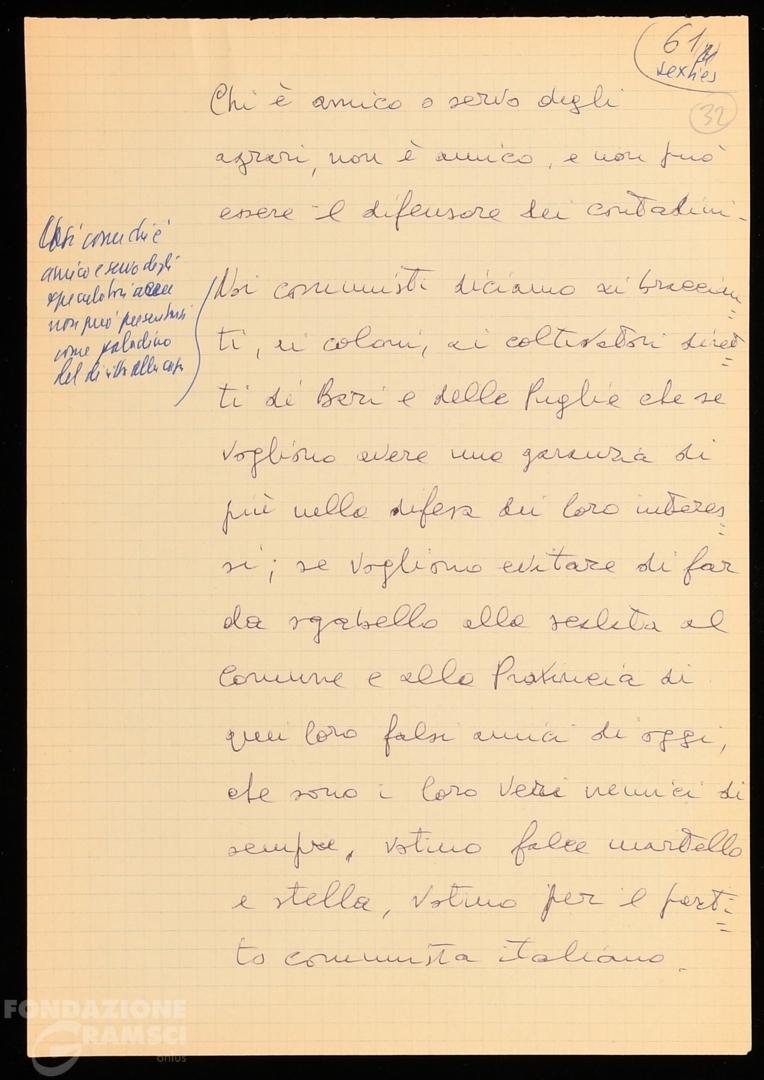 61
sexties
32
Chi è amico o servo degli
agrari, non è amico, e non può
essere il difensore dei contadini.
Così come chi è
amico e servo degli
speculatori
non può presentarsi
come paladino
del diritto alla casa
Noi comunisti diciamo ai braccian
ti, ai coloni, ai coltivatori diret=
ti di Bari e delle Puglie che se
vogliono avere una garanzia di
più nella difesa dei loro interes=
si; se vogliono evitare di far
da sgabello alla scalata al
Comune e alla Provincia di
quei loro falsi amici di oggi,
che sono i loro veri nemici di
sempre, votino falce martello
e stella, votino per il parti=
to comunista italiano.
FONDAZIONE
GRAMSCI
onlus